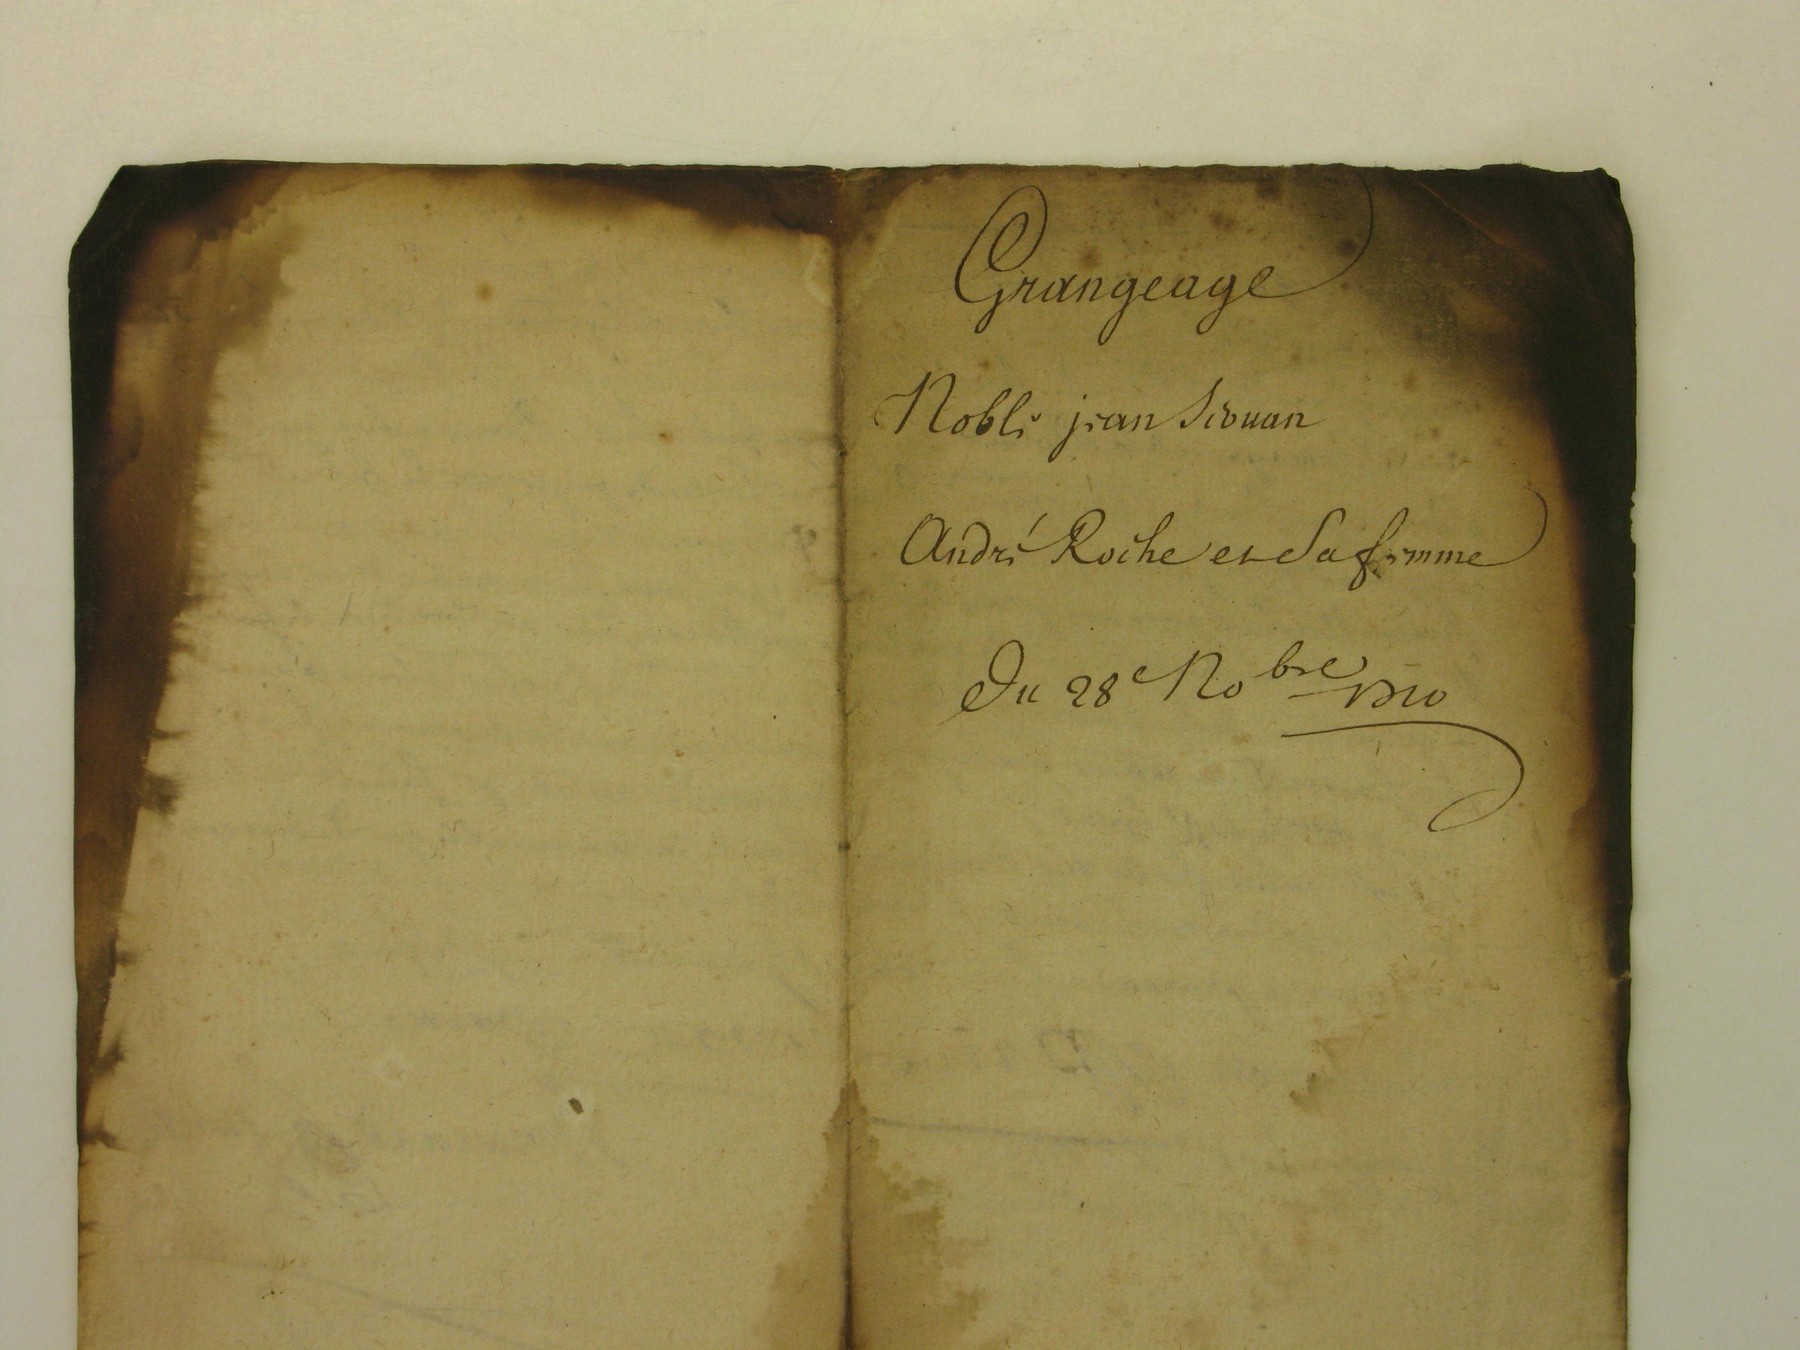 Grangeage
Noble jean Sivuan
André Roche et Sa femme
Du 28e Nobre 1710